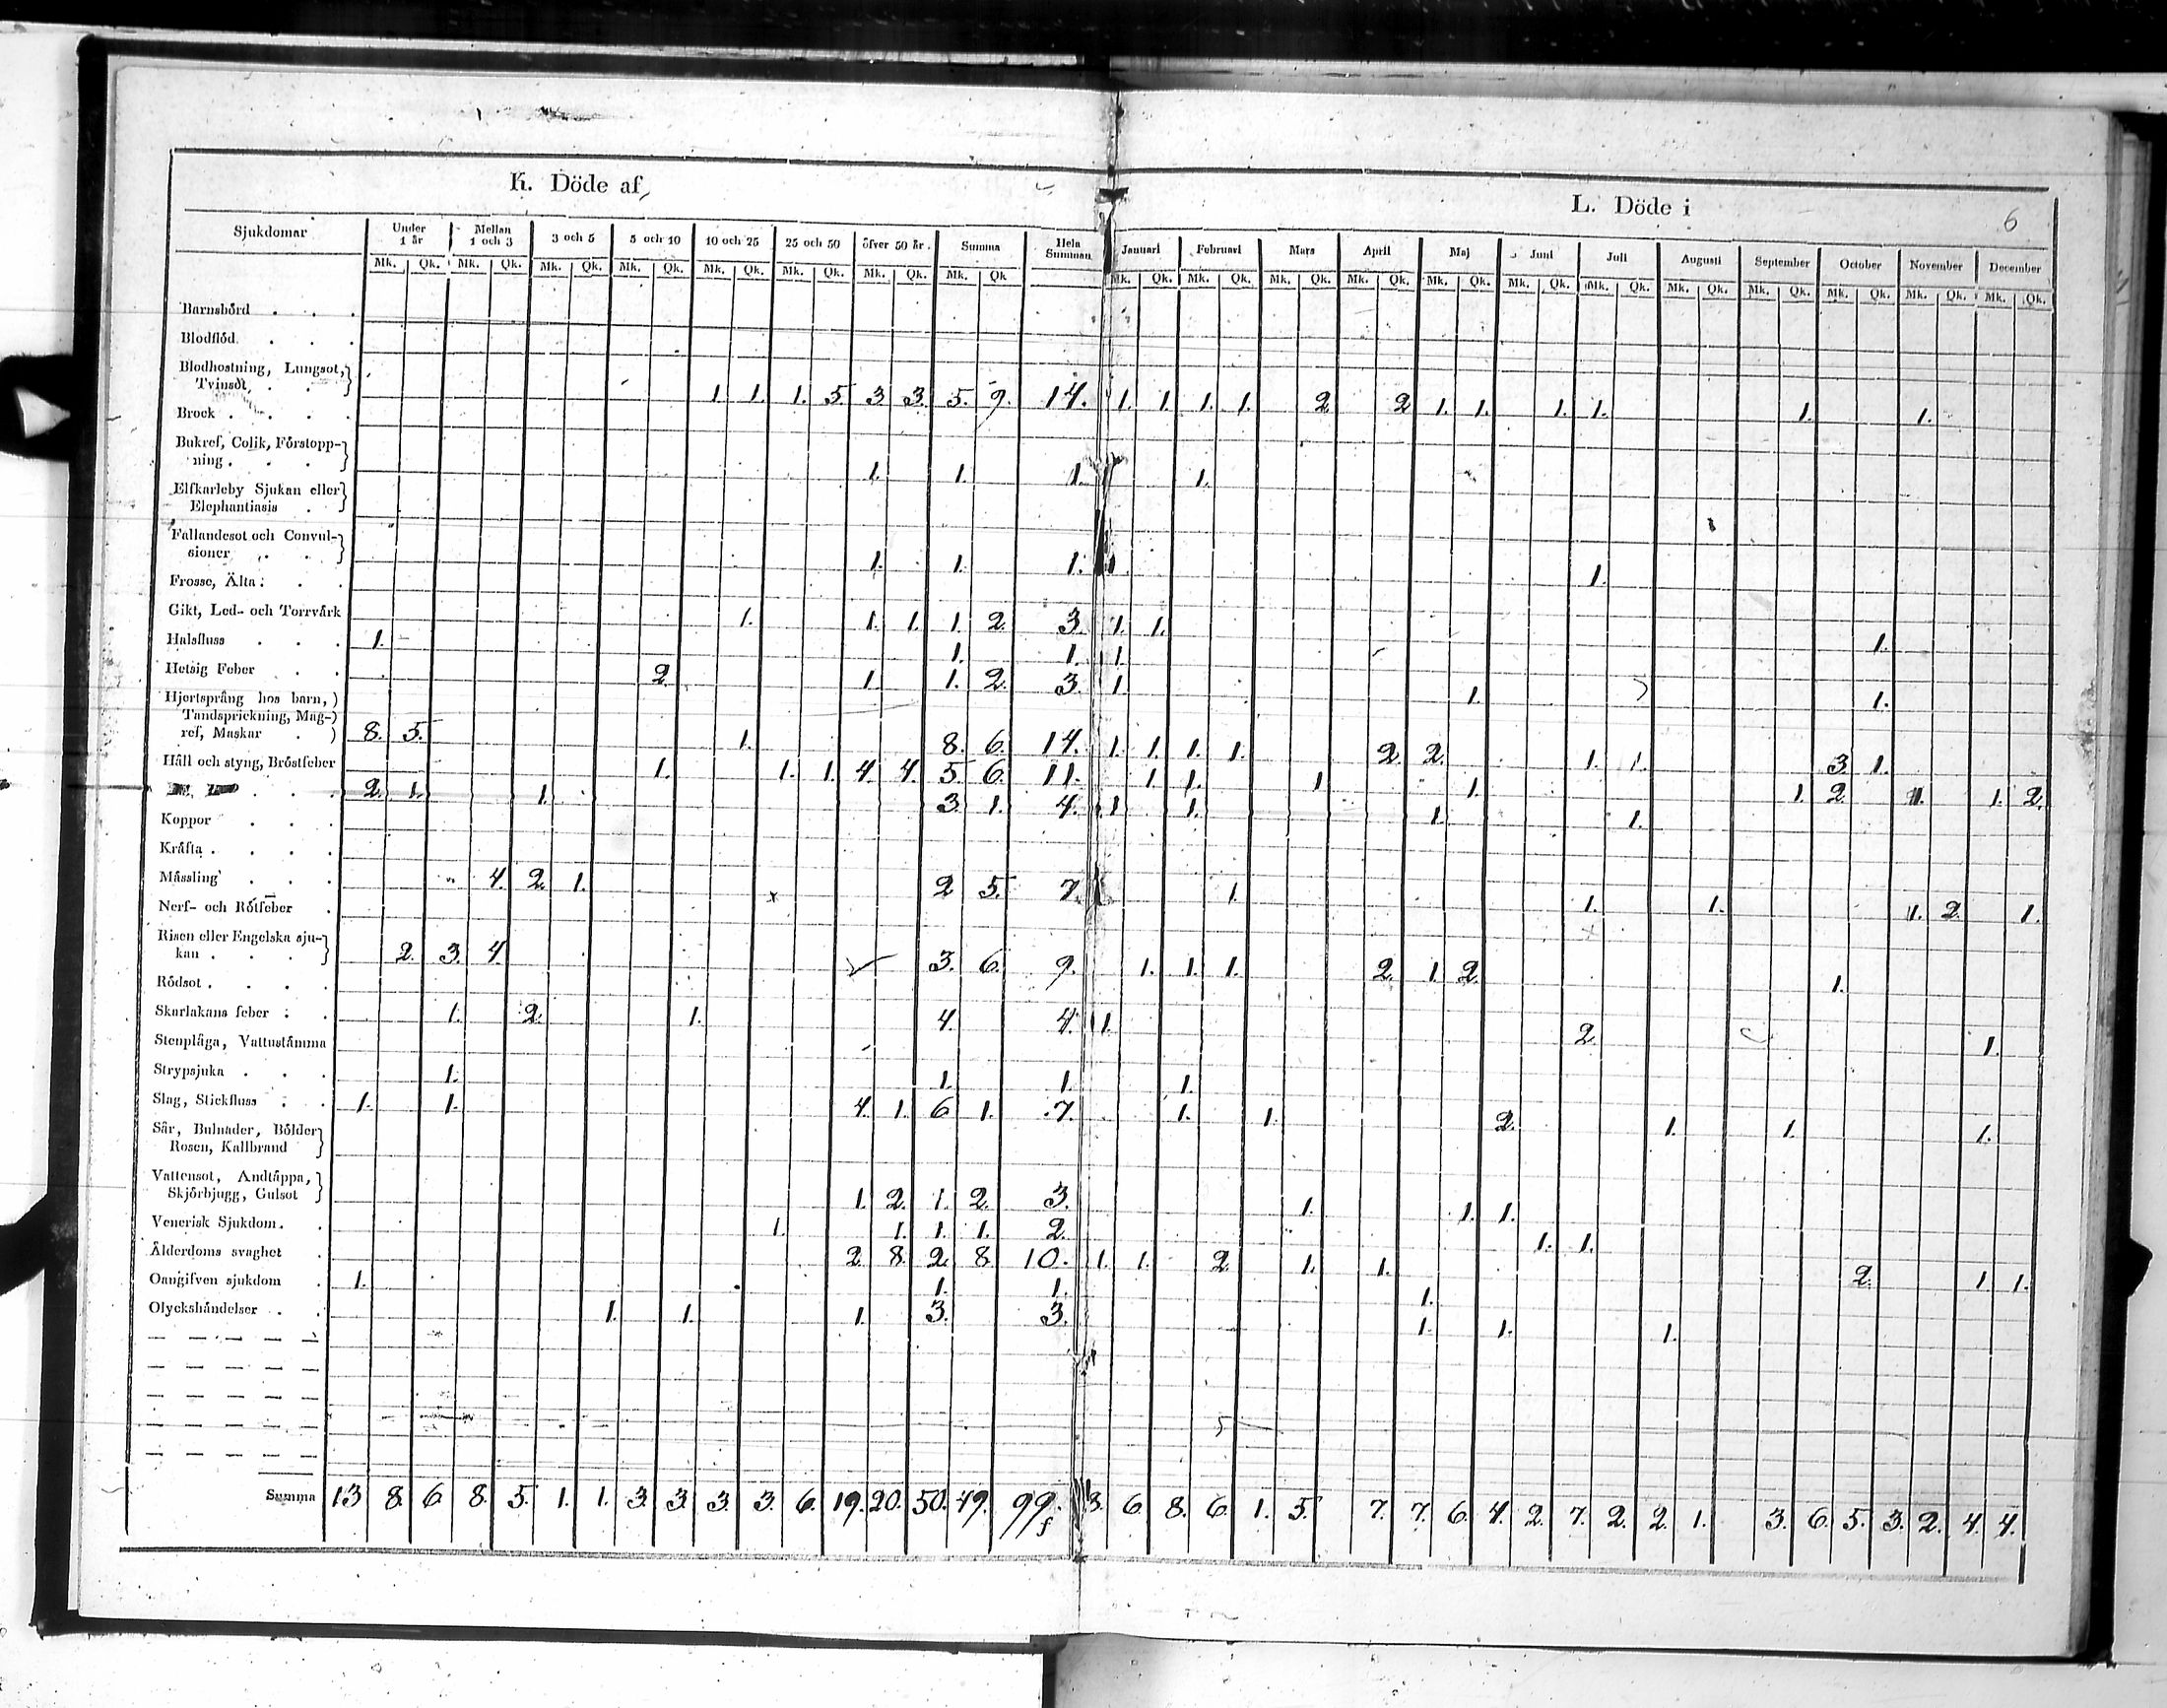 K. Döde af
L. Döde i
6
Sjukdomar Under 1 år Mellan 1 och 3 3 och 5 5 och 10 10 och 25 25 och 50 öfver 50 år. Summa Hela Summan Januari Februari Mars April Maj Juni Juli Augusti September October November December
Mk. Qk. Mk. Qk. Mk. Qk. Mk. Qk. Mk. Qk. Mk. Qk. Mk. Qk. Mk. Qk. Mk. Qk. Mk. Qk. Mk. Qk. Mk. Qk. Mk. Qk. Mk. Qk. Mk. Qk. Mk. Qk. Mk. Qk. Mk. Qk. Mk. Qk. Mk. Qk.
Barnsbörd . . .
Blodflöd. . . .
Blodhostning, Lungsot,
Tvinsot. . . 1. 1. 1. 5. 3 3. 5. 9. 14. 1. 1. 1. 1. 2 2 1. 1. 1. 1. 1. 1.
Brock . . . .
Bukref, Colik, Förstopp-
ning . . . 1. 1. 1. 1.
Elfkarleby Sjukan eller
Elephantiasis .
Fallandesot och Convul-
sioner . . 1. 1. 1. 1.
Frosse, Älta . .
Gikt, Led- och Torrvärk 1. 1. 1. 1. 2. 3. 1. 1. 1.
Halsfluss . . . 1. 1. 1. 1.
Hetsig Feber . . 2. 1. 1. 2. 3. 1. 1. 1.
Hjertsprång hos barn,
Tandsprickning, Mag-
ref, Maskar . 8. 5. 1. 8. 6. 14. 1. 1. 1. 1. 2. 2. 1. 1. 3. 1.
Håll och styng, Bröstfeber 1. 1. 1. 4. 4. 5. 6. 11. 1. 1. 1 1. 1. 2. 1. 1. 2.
. . . 2. 1. 1. 3. 1. 4. 1 1. 1. 1.
Koppor . . .
Kräfta . . . .
Mässling . . . 4. 2. 1. 2 5. 7. 1. 1. 1. 1. 2. 1.
Nerf- och Rötfeber .
Risen eller Engelska sju-
kan . . . 2. 3. 4. 3. 6. 9. 1. 1. 1. 2. 1. 2. 1.
Rödsot . . . .
Skarlakans feber . . 1. 2. 1. 4. 4. 1. 2. 1.
Stenplåga, Vattustämma
Strypsjuka . . . 1. 1. 1. 1.
Slag, Stickfluss . . 1. 1. 4. 1. 6 1. 7. 1. 1. 2. 1. 1. 1.
Sår, Bulnader, Bölder
Rosen, Kallbrand
Vattensot, Andtäppa,
Skjörbjugg, Gulsot 1. 2. 1. 2. 3. 1. 1. 1.
Venerisk Sjukdom. . 1. 1. 1. 1. 2. 1. 1.
Ålderdoms svaghet . 2. 8. 2. 8. 10. 1. 1. 2. 1. 1. 2. 1. 1.
Oangifven sjukdom . 1. 1. 1. 1.
Olyckshändelser . . 1. 1. 1. 3. 3. 1. 1. 1.
Summa 13 8. 6 8. 5. 1. 1. 3. 3. 3. 3. 6. 19. 20. 50. 49. 99. 3. 6. 8. 6. 1. 5. 7. 7. 6. 4. 2. 7. 2. 2. 1. 3. 6. 5. 3. 2. 4. 4.